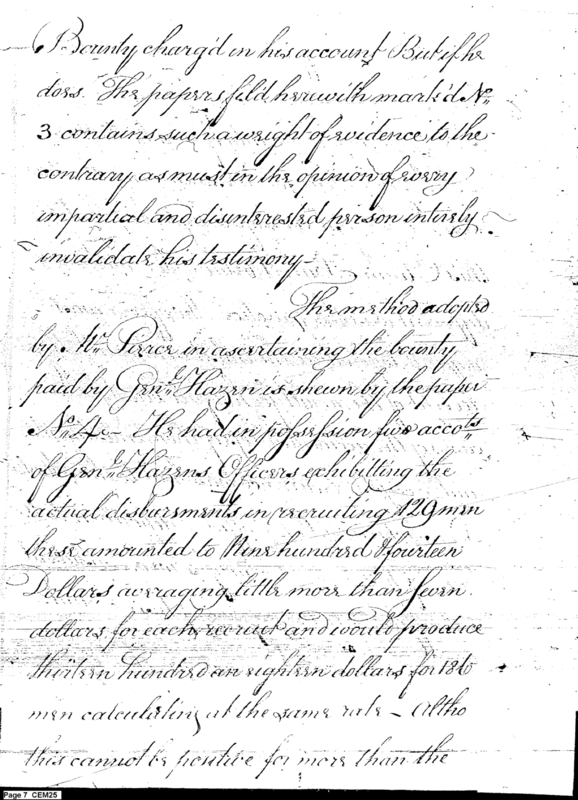 Bounty charg'd in his account But if he
does. The papers fil'd herewith mark'd No.
3 contains such a weight of evidence to the
contrary as must in the opinion of every
impartial and disinterested person intirely
invalidate his testimony—
The method adopted
by Mr. Pierce in ascertaining the bounty
paid by Genl. Hazen is shewn by the paper
No. 4 – He had in possession five accots.
of Genl. Hazens Officers exhibitting the
actual disbursments in recruiting 129 men
these amounted to Nine hundred & fourteen
Dollars averaging little more than Seven
dollars for each recruit and would produce
thirteen hundred an eighteen dollars for 186
men calculating at the same rate – Altho
this cannot be positive for more than the
Page 7 CEM25